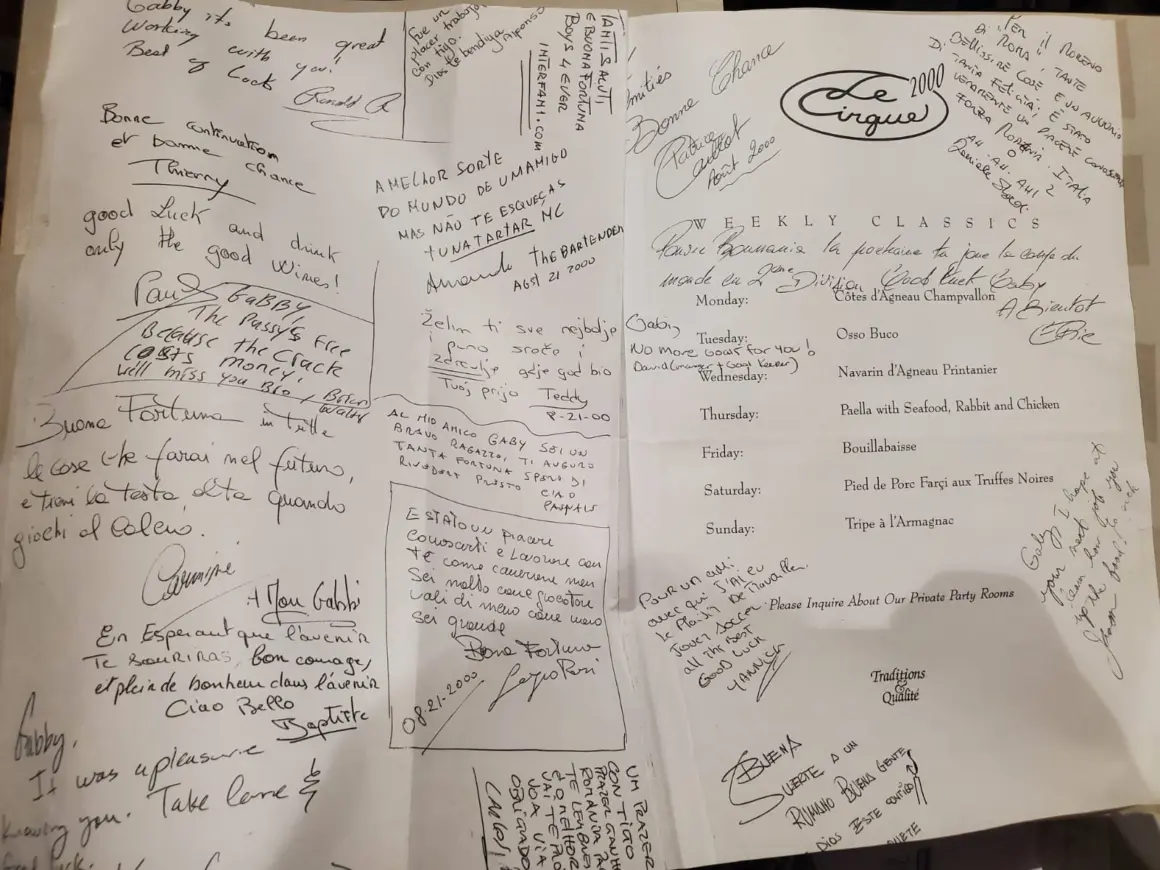 Gabby its been great
Working with you!
Best of Luck
Ronald R
Fue un
placer trabajar
contigo.
Dios te bendiga
TANTI SALUTI,
E BUONA FORTUNA
BOYS 4 EVER
INTERFAN1.COM
Bonne continuation
et bonne chance
Thierry
good Luck and drink
only the good wines!
Paul
GABBY,
The Pussy's Free
Because the Crack
Costs money!
will miss you Bro,
A MELHOR SORTE
DO MUNDO DE UM AMIGO
MAS NÃO TE ESQUEÇAS
TUNA TARTAR MC
Amando THE BARTENDER
AGST 21 2000
Želim ti sve najbolje
i puno sreće i
zdravlje gdje god bio
Tvoj prijo Teddy
8-21-00
Buona Fortuna in tutte
le cose che farai nel futuro,
e tieni la testa alta quando
giochi al calcio.
Carmine
AL MIO AMICO GABY SEI UN
BRAVO RAGAZZO, TI AUGURO
TANTA FORTUNA SPERO DI
RIVEDERTI PRESTO
CIAO
E STATO UN PIACERE
conoscerti e lavorare con
te come cameriere
sei molto come giocatore
vali di meno come uomo
sei grande
Bona Fortuna
08-21-2000
A Mon Gabbi
En Esperant que l'avenir
Te souriras, bon courage,
et plein de bonheur dans l'avenir
Ciao Bello
Baptiste
Gabby,
It was a pleasure
knowing you. Take Care
UM PRAZER
CONTIGO
TE LEMBRES
VAI TE
OBRIGADO
CARLOS!
Amitiés
Bonne Chance
Patrice
Août 2000
Le Cirque 2000
PER IL RUMENO
DI ROMA!! TANTE
BELLISSIME COSE E UN AUGURIO
DI TANTA FELICITÀ! È STATO
VERAMENTE UN PIACERE
FORZA ROMANIA. ITALIA
0 2
AH. AH. AH!
Daniele
WEEKLY CLASSICS
Pauvre Roumania la prochaine tu joue la coupe du
monde en 2ème Division Good luck Gaby
A Bientot
Monday: Côtes d'Agneau Champvallon
Tuesday: Osso Buco
Wednesday: Navarin d'Agneau Printanier
Thursday: Paella with Seafood, Rabbit and Chicken
Friday: Bouillabaisse
Saturday: Pied de Porc Farçi aux Truffes Noires
Sunday: Tripe à l'Armagnac
Gabi,
No more goals for you!
David (manager + Goal Keeper)
Please Inquire About Our Private Party Rooms
Traditions
&
Qualité
Pour un ami.
avec qui J'AI eu
le Plaisir De Travailler.
Jouer Soccer
all the BEST
GOOD LUCK
YANNICK
Gaby I hope at
your next job you
learn how to
up the food!
BUENA
SUERTE A UN
RUMANO BUENA GENTE
DIOS ESTE CONTIGO